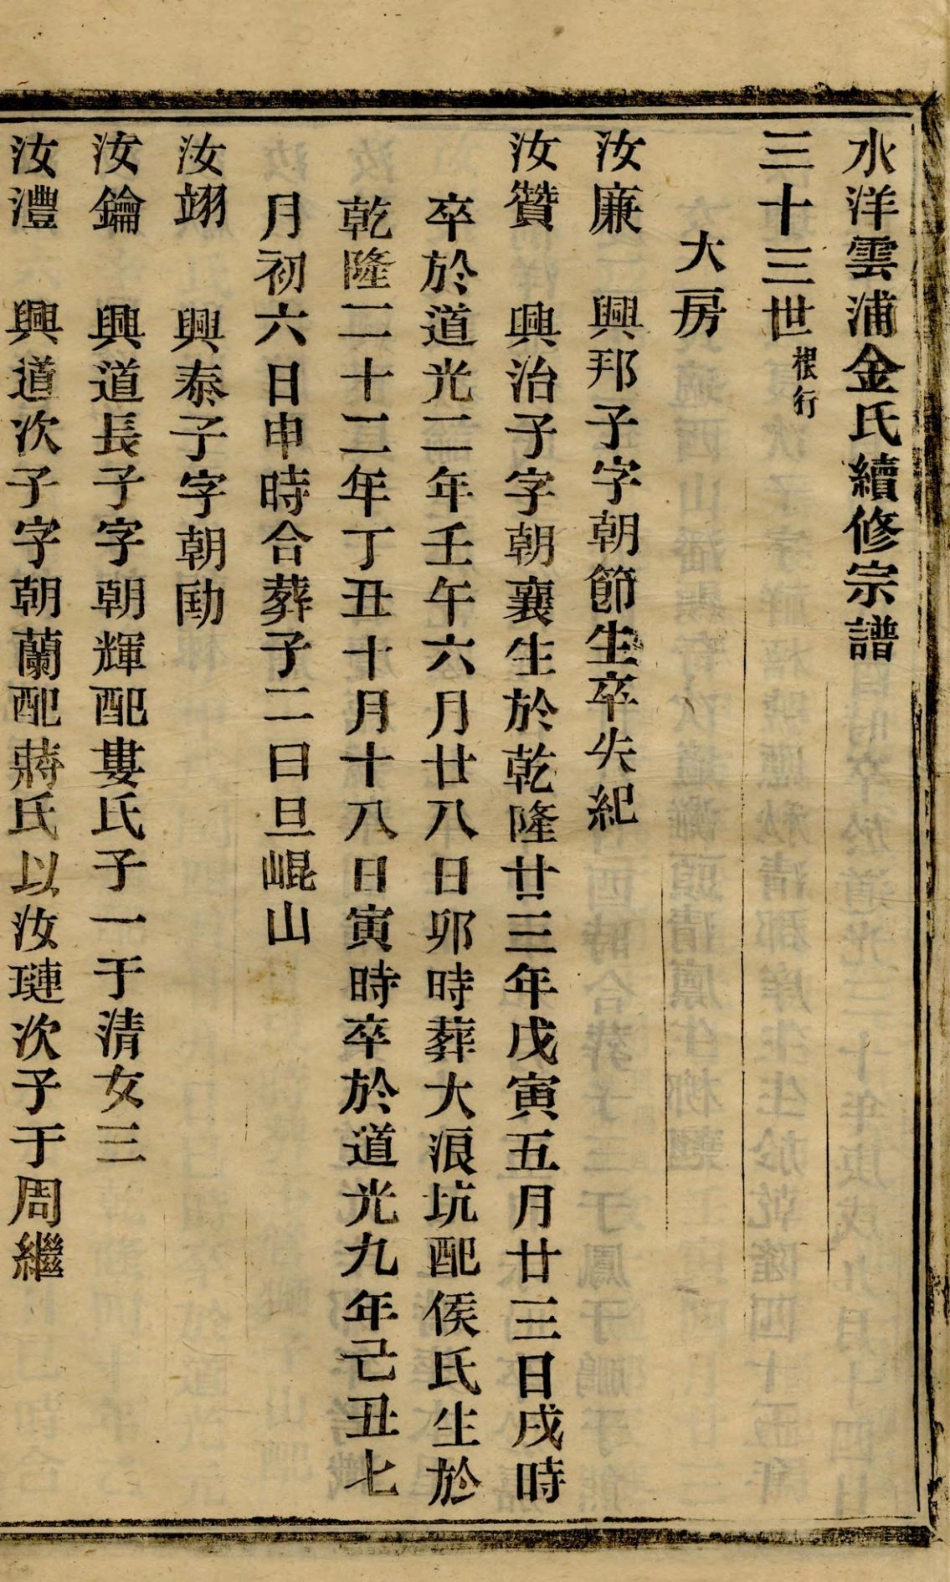 水洋雲浦金氏續修宗譜
三十三世根行
大房
汝廉　興邦子字朝節生卒失紀
汝贊　興治子字朝襄生於乾隆廿三年戊寅五月廿三日戌時
卒於道光二年壬午六月廿八日卯時葬大浪坑配侯氏生於
乾隆二十二年丁丑十月十八日寅時卒於道光九年己丑七
月初六日申時合葬子二曰旦崐山
汝翊　興泰子字朝勛
汝鑰　興道長子字朝輝配婁氏子一于清女三
汝澧　興道次子字朝蘭配蔣氏以汝璉次子于周繼